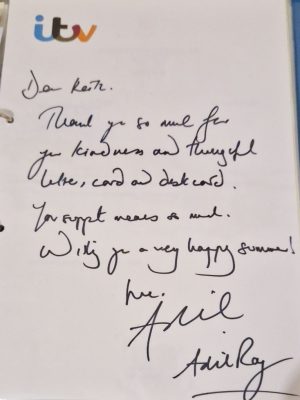 itv
Dear Keith.
Thank you so much for
your kindness and thoughtful
letter, card and desk card.
Your support means so much.
Wishing you a very happy summer!
Love.
Adil
Adil Ray